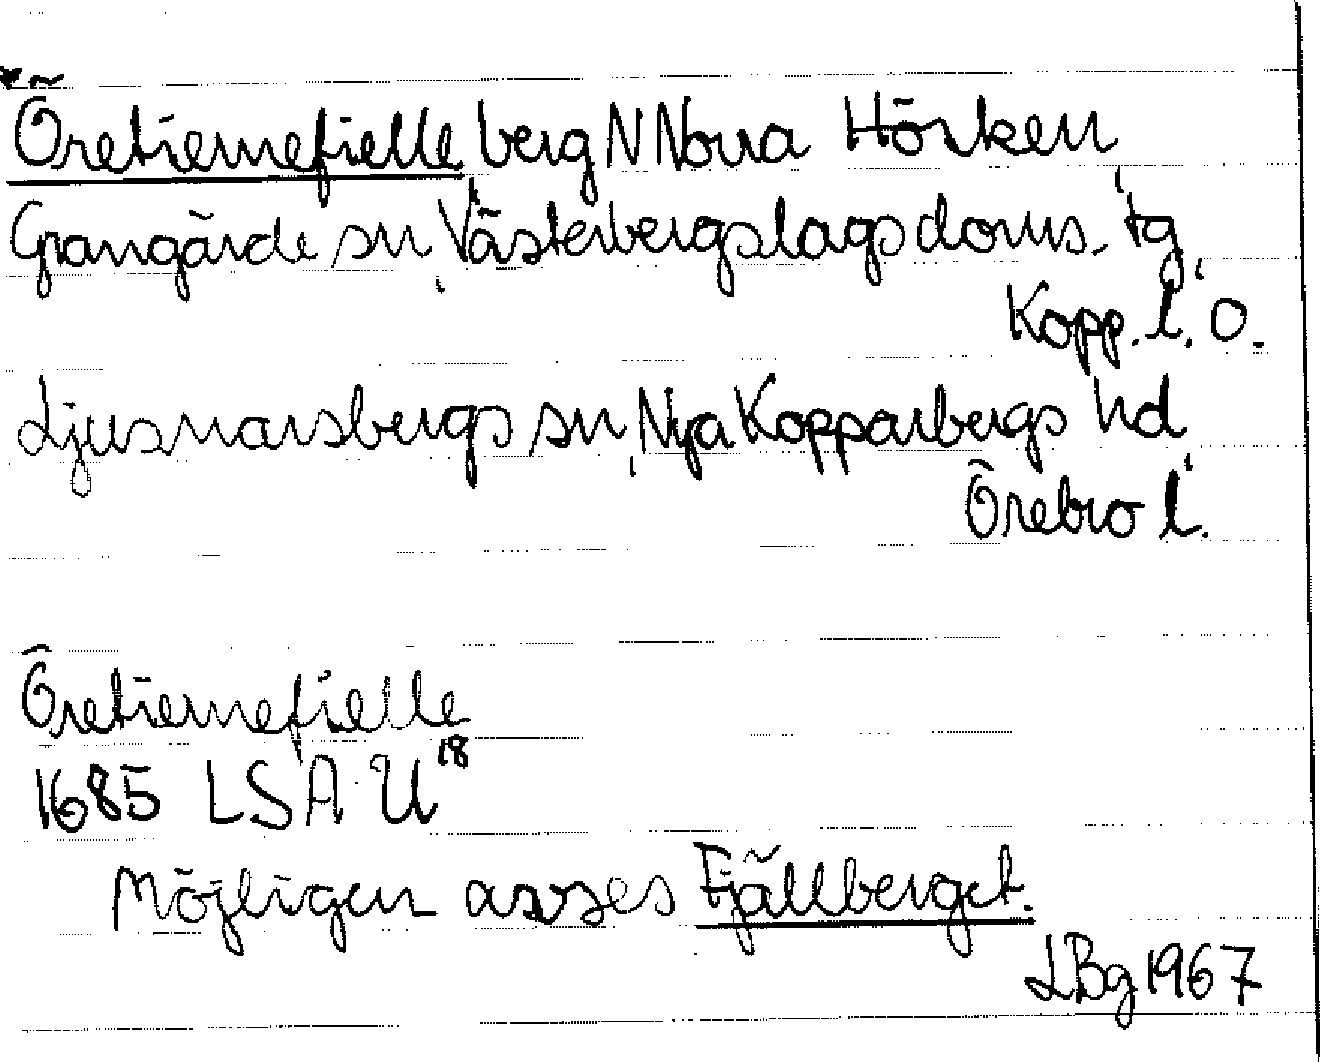 Öretiernefielle berg N Norra Hörken,
Grangärde sn, Västerbergslags doms. tg,
Kopp. l. o.
Ljusnarsbergs sn, Nya Kopparbergs hd,
Örebro l.
Öretiernefielle
1685 LSA U18
Möjligen avses Fjällberget.
LBg 1967